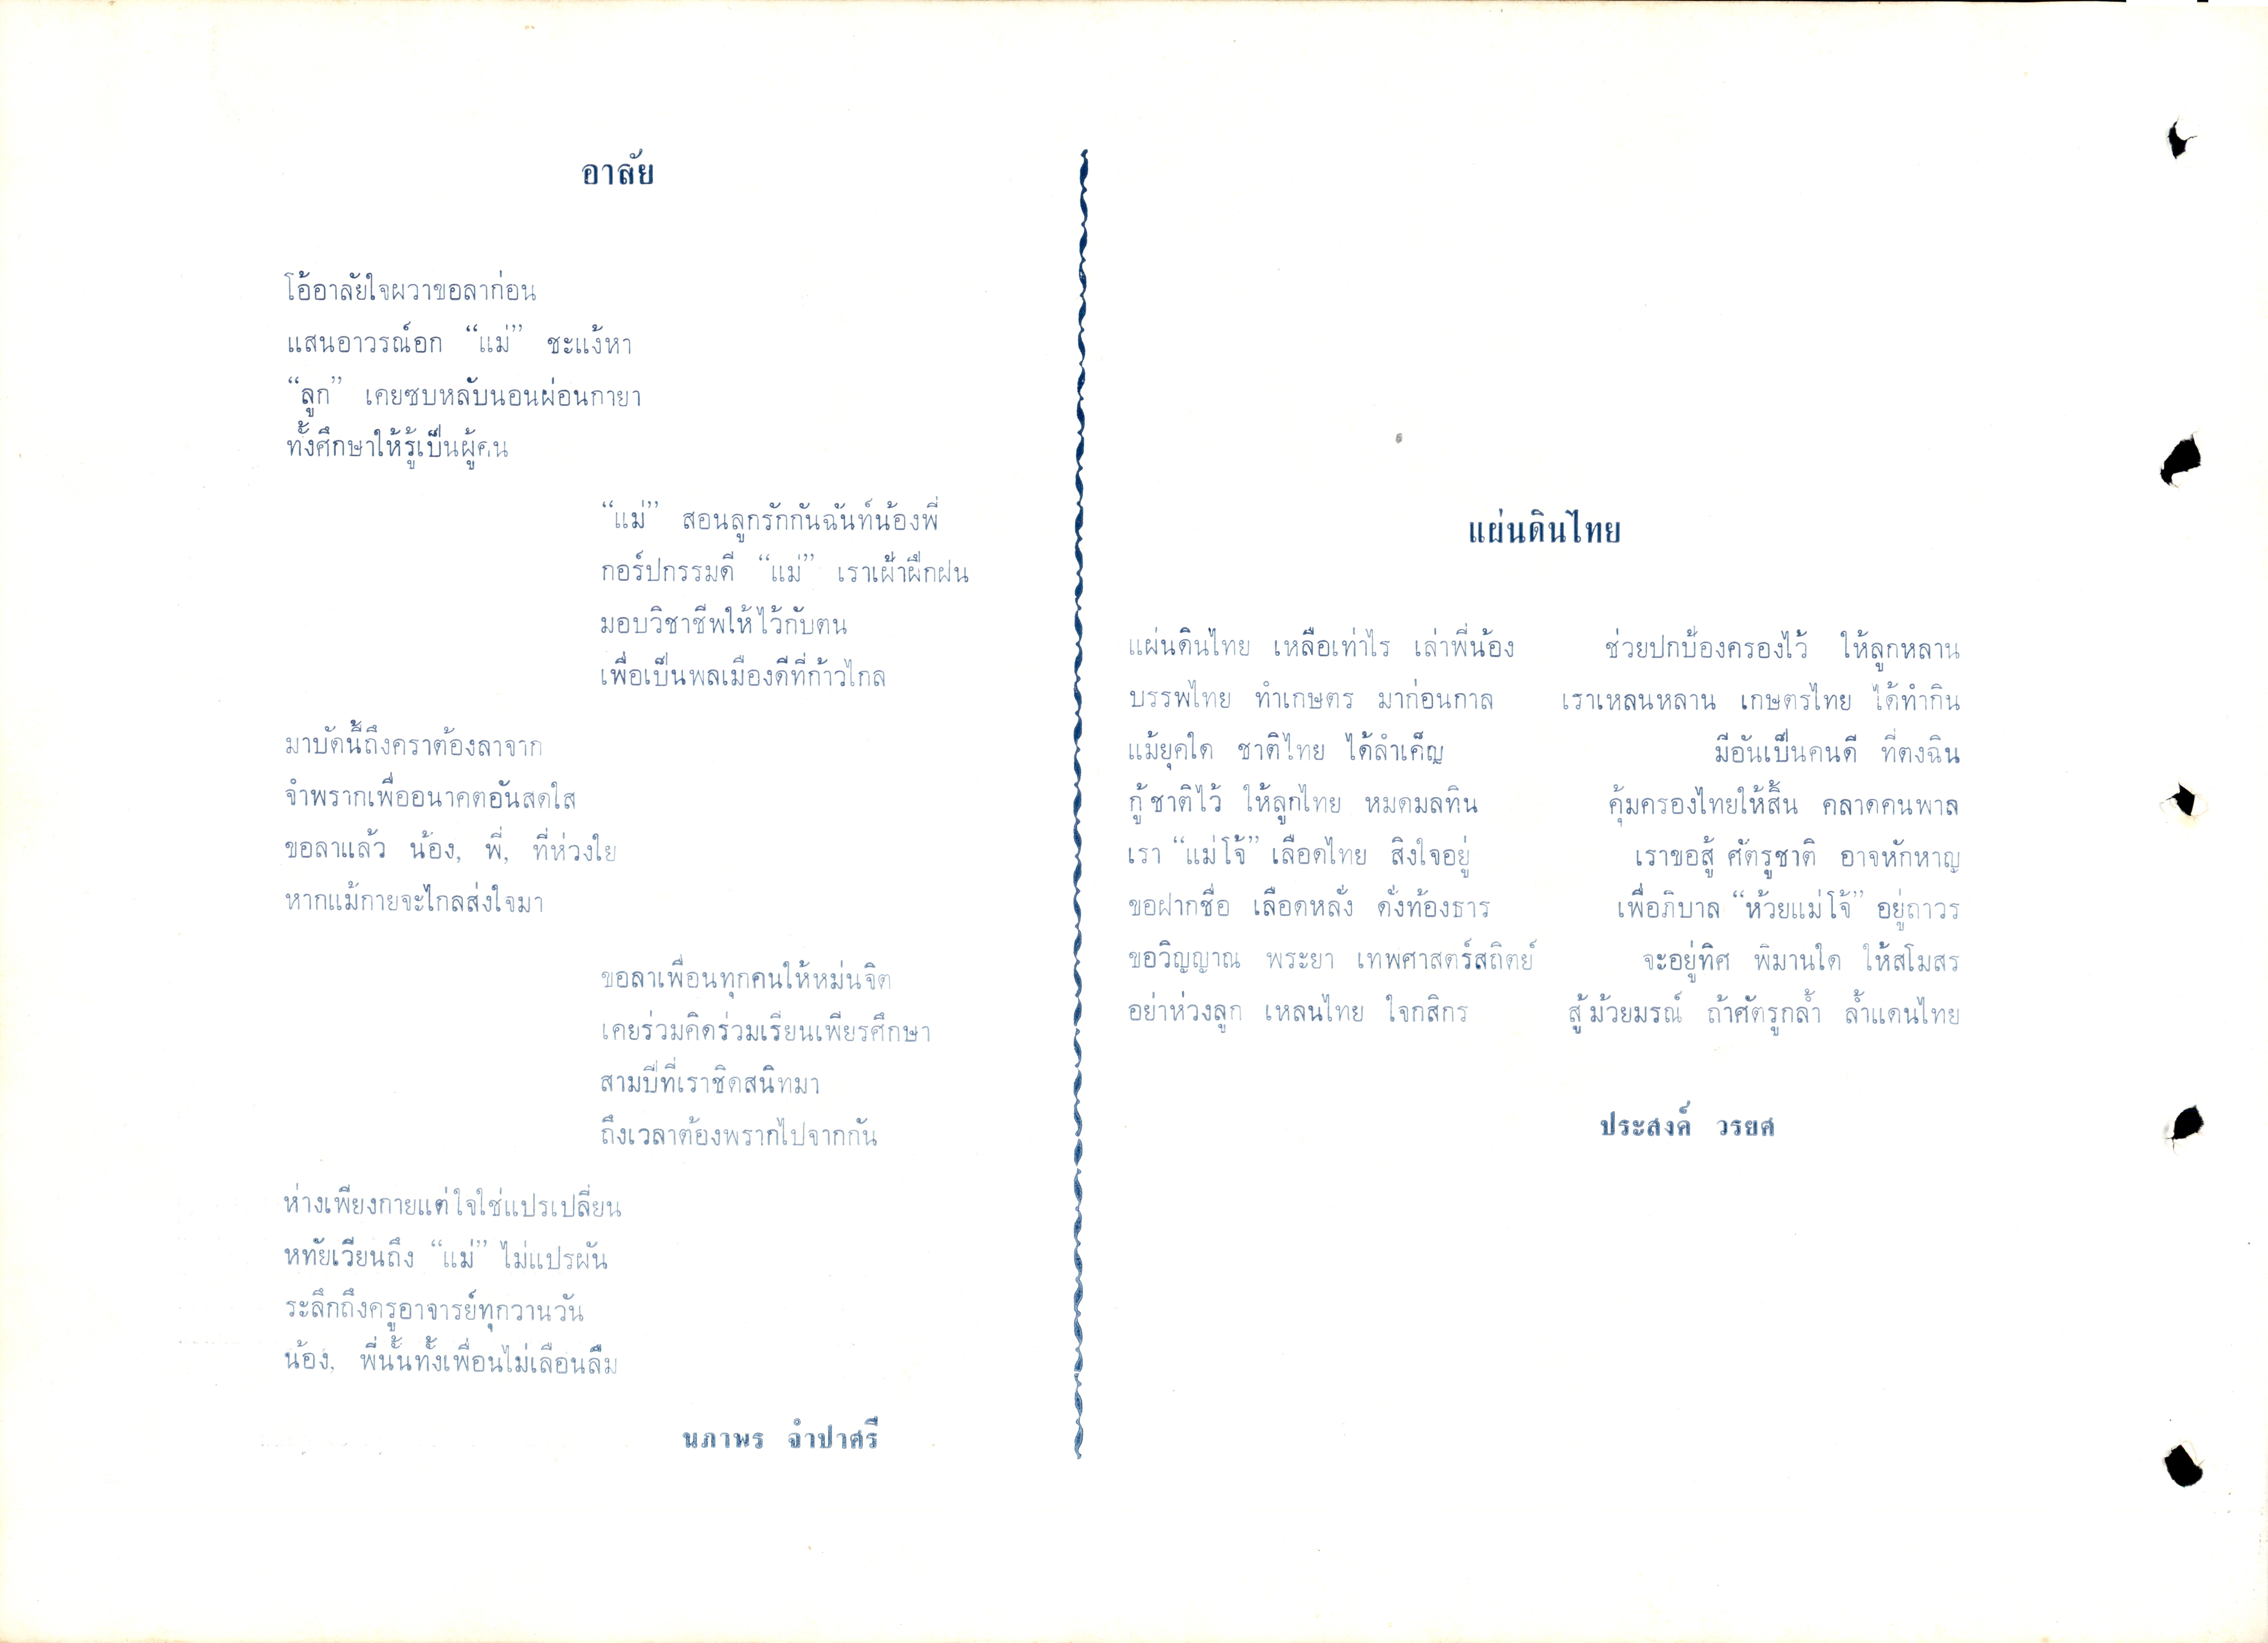 อาลัย
โอ้อาลัยใจผวาขอลาก่อน
แสนอาวรณ์อก “แม่” ชะแง้หา
“ลูก” เคยซบหลับนอนผ่อนกายา
ทั้งศึกษาให้รู้เป็นผู้คน
“แม่” สอนลูกรักกันฉันท์น้องพี่
กอร์ปกรรมดี “แม่” เราเฝ้าฝึกฝน
มอบวิชาชีพให้ไว้กับตน
เพื่อเป็นพลเมืองดีที่ก้าวไกล
มาบัดนี้ถึงคราต้องลาจาก
จำพรากเพื่ออนาคตอันสดใส
ขอลาแล้ว น้อง, พี่, ที่ห่วงใย
หากแม้กายจะไกลส่งใจมา
ขอลาเพื่อนทุกคนให้หม่นจิต
เคยร่วมคิดร่วมเรียนเพียรศึกษา
สามปีที่เราชิดสนิทมา
ถึงเวลาต้องพรากไปจากกัน
ห่างเพียงกายแต่ใจใช่แปรเปลี่ยน
หทัยเวียนถึง “แม่” ไม่แปรผัน
ระลึกถึงครูอาจารย์ทุกวานวัน
น้อง, พี่นั้นทั้งเพื่อนไม่เลือนลืม
นภาพร จำปาศรี
แผ่นดินไทย
แผ่นดินไทย เหลือเท่าไร เล่าพี่น้อง ช่วยปกป้องครองไว้ ให้ลูกหลาน
บรรพไทย ทำเกษตร มาก่อนกาล เราเหลนหลาน เกษตรไทย ได้ทำกิน
แม้ยุคใด ชาติไทย ได้ลำเค็ญ มีอันเป็นคนดี ที่ตงฉิน
กู้ชาติไว้ ให้ลูกไทย หมดมลทิน คุ้มครองไทยให้สิ้น คลาดคนพาล
เรา “แม่โจ้” เลือดไทย สิงใจอยู่ เราขอสู้ ศัตรูชาติ อาจหักหาญ
ขอฝากชื่อ เลือดหลั่ง ดั่งท้องธาร เพื่อภิบาล “ห้วยแม่โจ้” อยู่ถาวร
ขอวิญญาณ พระยา เทพศาสตร์สถิตย์ จะอยู่ทิศ พิมานใด ให้สโมสร
อย่าห่วงลูก เหลนไทย ใจกสิกร สู้ม้วยมรณ์ ถ้าศัตรูกล้ำ ล้ำแดนไทย
ประสงค์ วรยศ